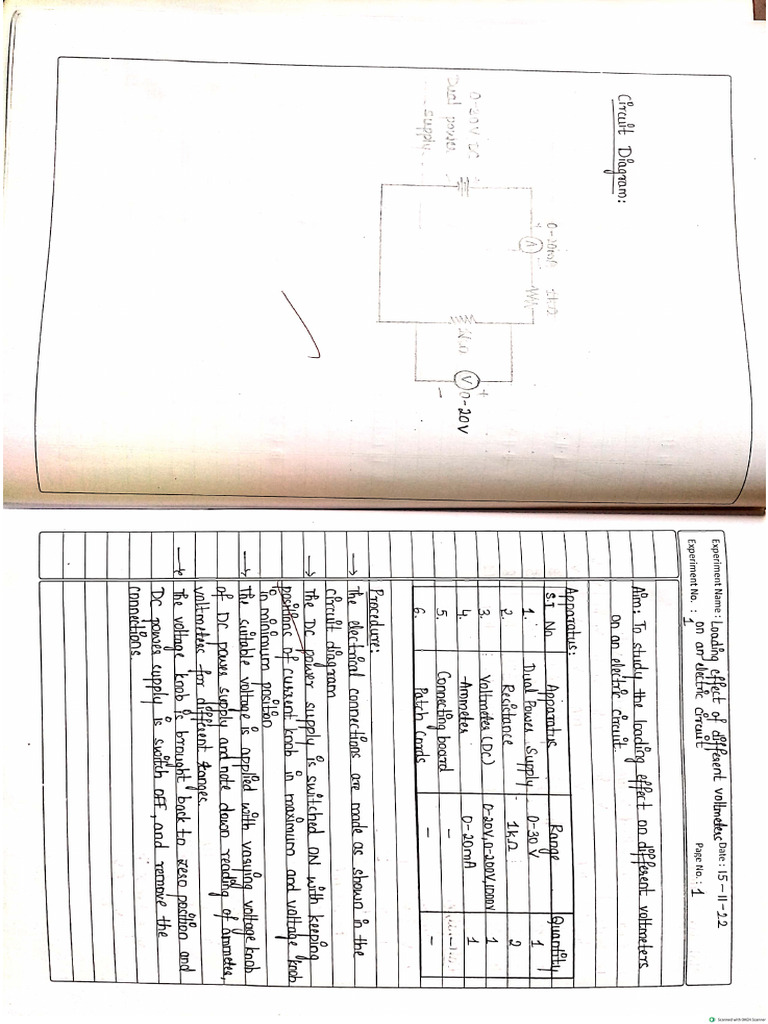 Circuit Diagram:
0-20mA 1kΩ
+ A -
0-20V DC
Dual power
supply
1kΩ
+
V 0-20V
-
Experiment Name: Loading effect of different voltmeters Date: 15-11-22
on an electric circuit
Experiment No.: 1 Page No.: 1
Aim: To study the loading effect on different voltmeters
on an electric circuit.
Apparatus:
S.I No Apparatus Range Quantity
1. Dual Power Supply 0-30V 1
2. Resistance 1kΩ 2
3. Voltmeter (DC) 0-20V, 0-200V, 1000V 1
4. Ammeter 0-20mA 1
5. Connecting board - -
6. Patch Cords - -
Procedure:
→ The electrical connections are made as shown in the
circuit diagram
→ The DC power supply is switched ON with keeping
positions of current knob in maximum and voltage knob
in minimum position
→ The suitable voltage is applied with varying voltage knob
of DC power supply and note down reading of ammeter,
voltmeters for different ranges.
→ The voltage knob is brought back to zero position and
DC power supply is switch OFF, and remove the
connections.
Scanned with OKEN Scanner